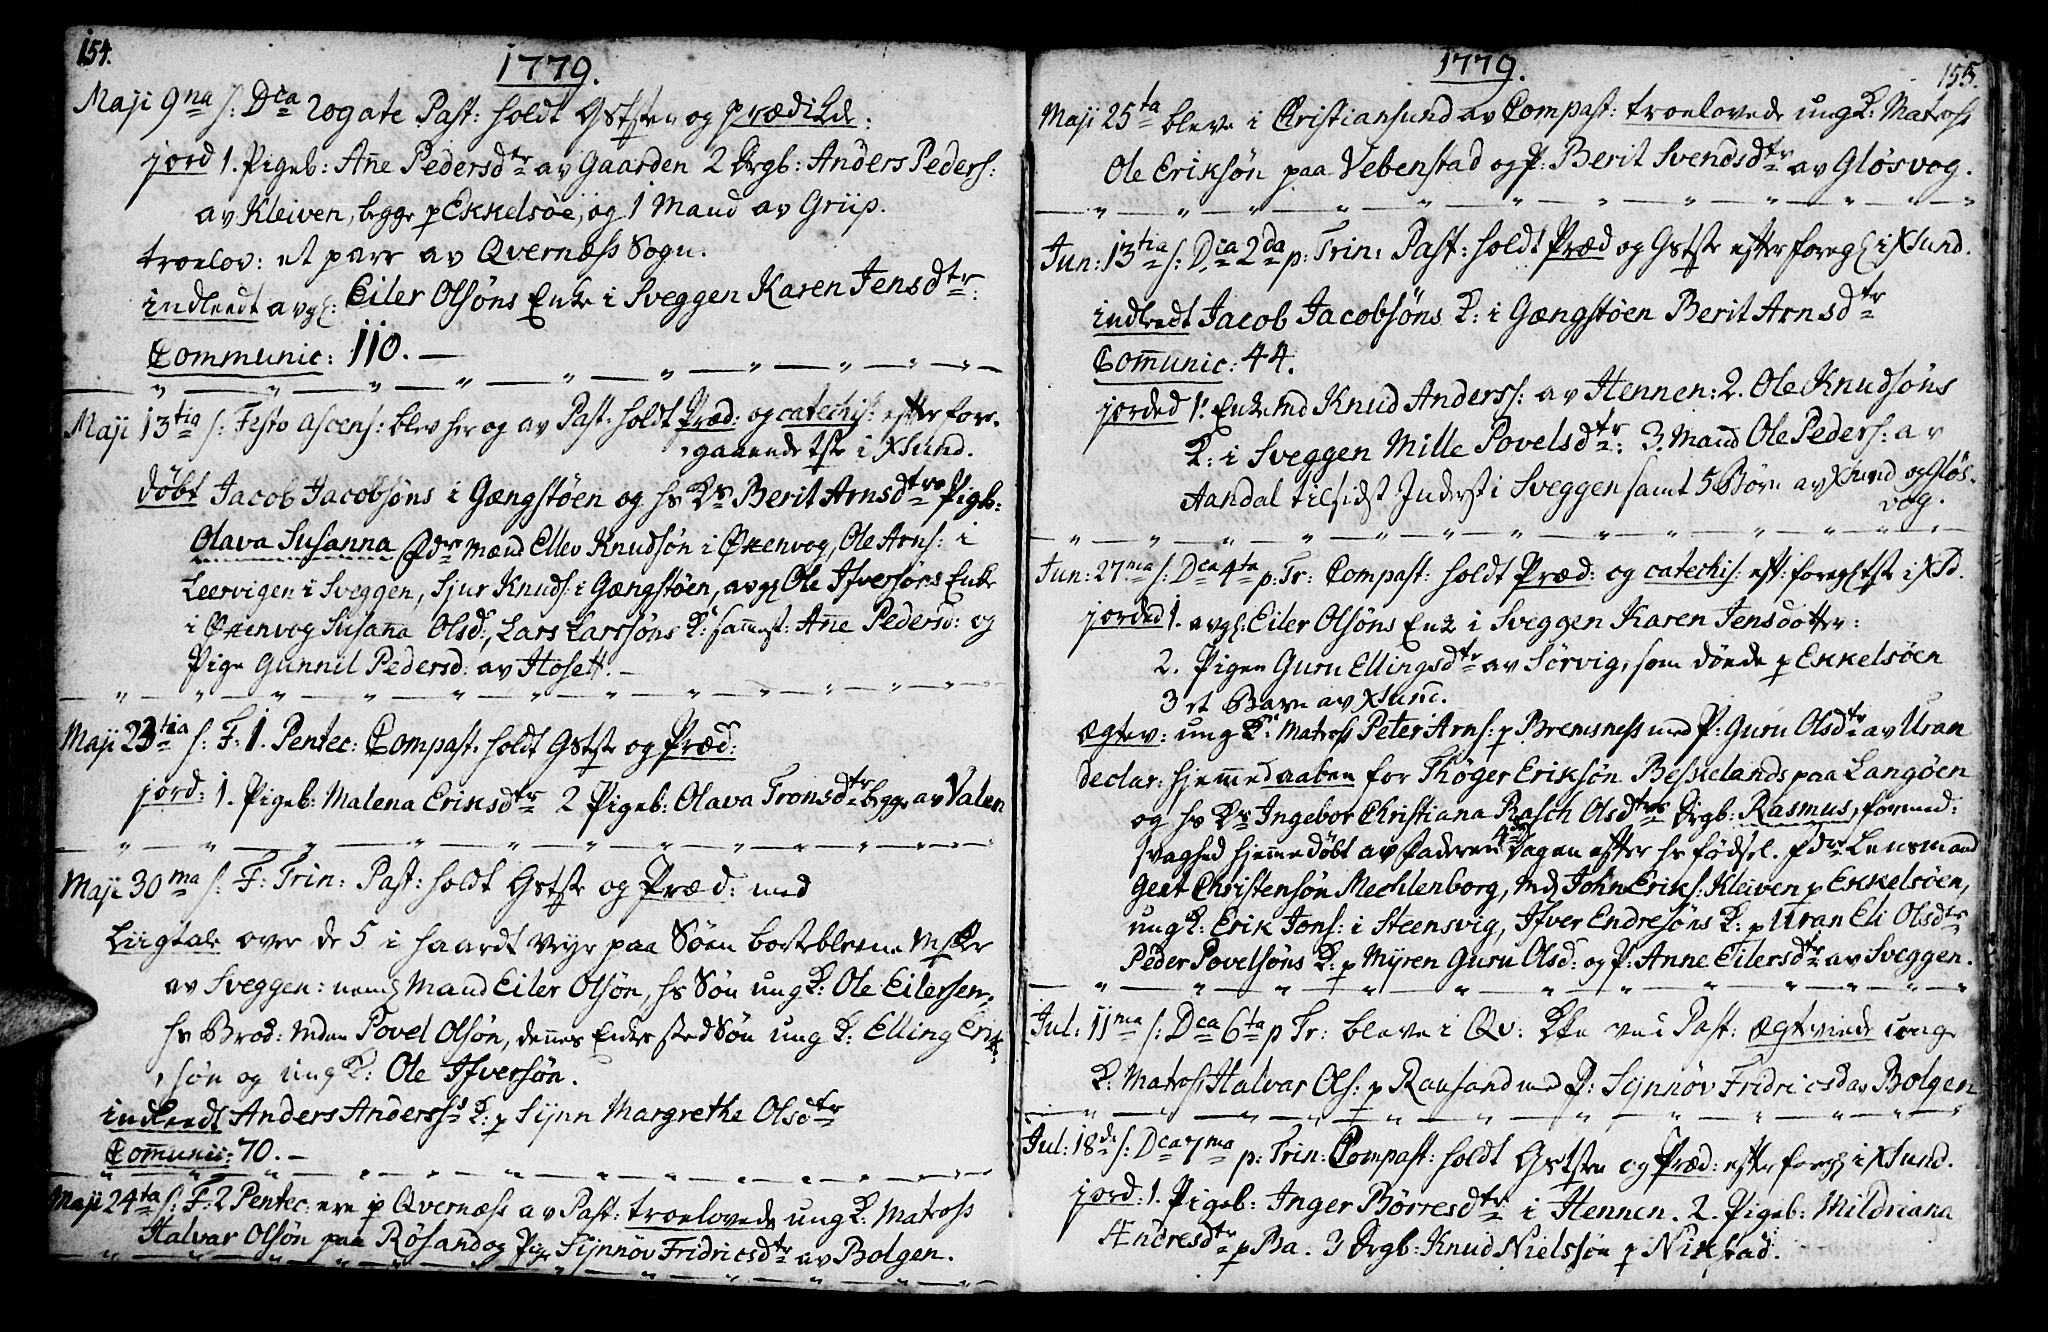 154.
1779.
Maji 9na s: Dca Rogate Past: holdt Gstste og prædikde:
jord 1. Pigeb: Añe Pedersdtr av Gaarden 2 drgb: Anders Peders:
av Kleiven, begge p Ekkelsøe, og 1 Mand av Griip.
troelov: et parr av Qvernæss Sogn.
indleedt avgl: Eiler Olsøns Enke i Sveggen Karen Jensdtr:
Communic: 110. —
Maji 13tia s: Festo Ascens: blev her og av Past: holdt Præd: og catechis: efter fore-
gaaende tste i Xsund.
døbt Jacob Jacobsøns i Gængstøen og hs Ks Berit Arnsdtrs Pigb:
Olava Susanna fdre Mænd Ellev Knudsøn i Ørenvog, Ole Arns: i
Leervigen i Sveggen, Sjur Knuds: i Gængstøen, avgl Ole Ifversøns Enke
i Ørenvog Susaña Olsd:, Lars Larssøns K: sam̃est: Añe Pedersd: og
Pige Gunnil Pedersd: av Hosett. —
Maji 23tia s: F: 1. Pentec: Compast: holdt Gstste og Præd:
jord: 1. Pigeb: Malena Eriksdtr 2 Pigeb: Olava Tronsdtr begge av Valen
Maji 30ma s: F: Trin: Past: holdt Gstste og Præd: med
Liigtale over de 5 i haardt Veyr paa Søen bortblevne Msker
av Sveggen: neml Mand Eiler Olsøn, hs Søn ung K: Ole Eilersen,
hs Brod: Mden Povel Olsøn, dennes Enkes sted Søn ung K: Elling Erik-
søn og ung K: Ole Ifversøn.
indleedt Anders Anderss: K: p Sijnn Margrethe Olsdtr
Com̃unic: 70. —
Maji 24ta s: F: 2 Pentec: ere p Qvernæss av Past: troelovede ung K: Matross
Halvar Olsøn paa Røsand og Pige Sijnnøv Fridricsdtr av Bolgen.
1779.
155.
Maji 25ta bleve i Christiansund av Compast: troelovede ung K: Matross
Ole Eriksøn paa Vebenstad og P: Berit Svendsdtr av Gløsvog.
Jun: 13tia s: Dca 2da p: Trin: Past: holdt Præd og Gstste efter foregl i Xsund.
indleedt Jacob Jacobsøns K: i Gængstøen Berit Arnsdtr
Com̃unic: 44.
jorded 1. Enkemd Knud Anderss: av Hennen: 2. Ole Knudsøns
K: i Sveggen Mille Povelsdtr: 3. Mand Ole Peders: av
Aandal tilsidst Inderst i Sveggen samt 5 Børn av Xsund og Gløs-
vog.
Jun: 27ma s: Dca 4ta p: Tr: Compast: holdt Præd: og catechis: eft: foregl tste i Xsd.
jorded 1. avgl: Eiler Olsøns Enke i Sveggen Karen Jensdotter:
2. Pigen Guru Ellingsdtr av Sørvig, som døede p Ekkelsøen
3 et Barn av Xsund.
Ægtev: ung K: Matross Peter Arns: p Bremsness med P: Guru Olsdtr av Uran
declar: hjem̃edaaben for Thøger Eriksøn Beskelands paa Langøen
og hs Ks Ingebor Christiana Rasch Olsdtrs Drgb: Rasmus, formed:
svaghed hjem̃edøbt av Faderen 4de Dagen efter hs fødsel. fdre Lensmand
Geet Christensøn Mechlenborg, Md John Eriks: Kleiven p Ekkelsøen,
ung K: Erik Jons: i Steensvig, Ifver Endresøns K: p Uran Eli Olsdtr
Peder Povelsøns K: p Myren Guru Olsd: og P: Anne Eilersdtr av Sveggen.
Jul: 11ma s: Dca 6ta p Tr: bleve i Qv: Kke ved Past: ægteviede unge
K: Matross Halvar Ols: p Rausand med P: Sijnnøv Fridricsd av Bolgen
Jul: 18de s: Dca 7ma p: Trin: Compast: holdt Gstste og Præd: efter foregl i Xsund.
jord: 1. Pigeb: Inger Børresdtr i Hennen. 2. Pigeb: Mildriana
Ændresdtr p Ba. 3 Drgb: Knud Nielssøn p Nikstad.